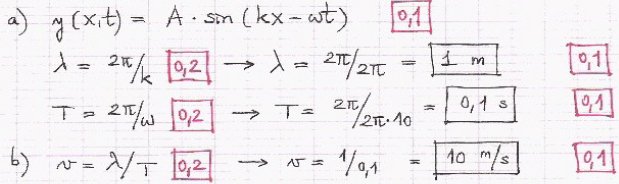 a) y(x,t) = A · sin (kx - ωt) 0,1
λ = 2π/k 0,2 → λ = 2π/2π = 1 m 0,1
T = 2π/ω 0,2 → T = 2π/2π·10 = 0,1 s 0,1
b) v = λ/T 0,2 → v = 1/0,1 = 10 m/s 0,1